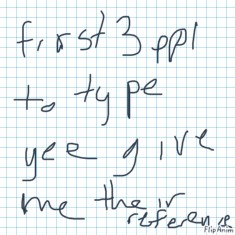 first 3 ppl
to type
yee give
me their
referenꓢe
FlipAnim